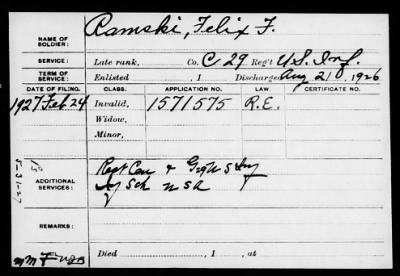 NAME OF SOLDIER: Ramski, Felix F.
SERVICE: Late rank, Co. C 29 Reg't U.S. Inf.
TERM OF SERVICE: Enlisted , 1 Discharged Aug 21, 1926
DATE OF FILING. CLASS. APPLICATION NO. LAW. CERTIFICATE NO.
1927 Feb 24 Invalid, 1571575 R.E.
Widow,
Minor,
ADDITIONAL SERVICES: Inf
Inf Sch U S A
REMARKS:
Died , 1 , at